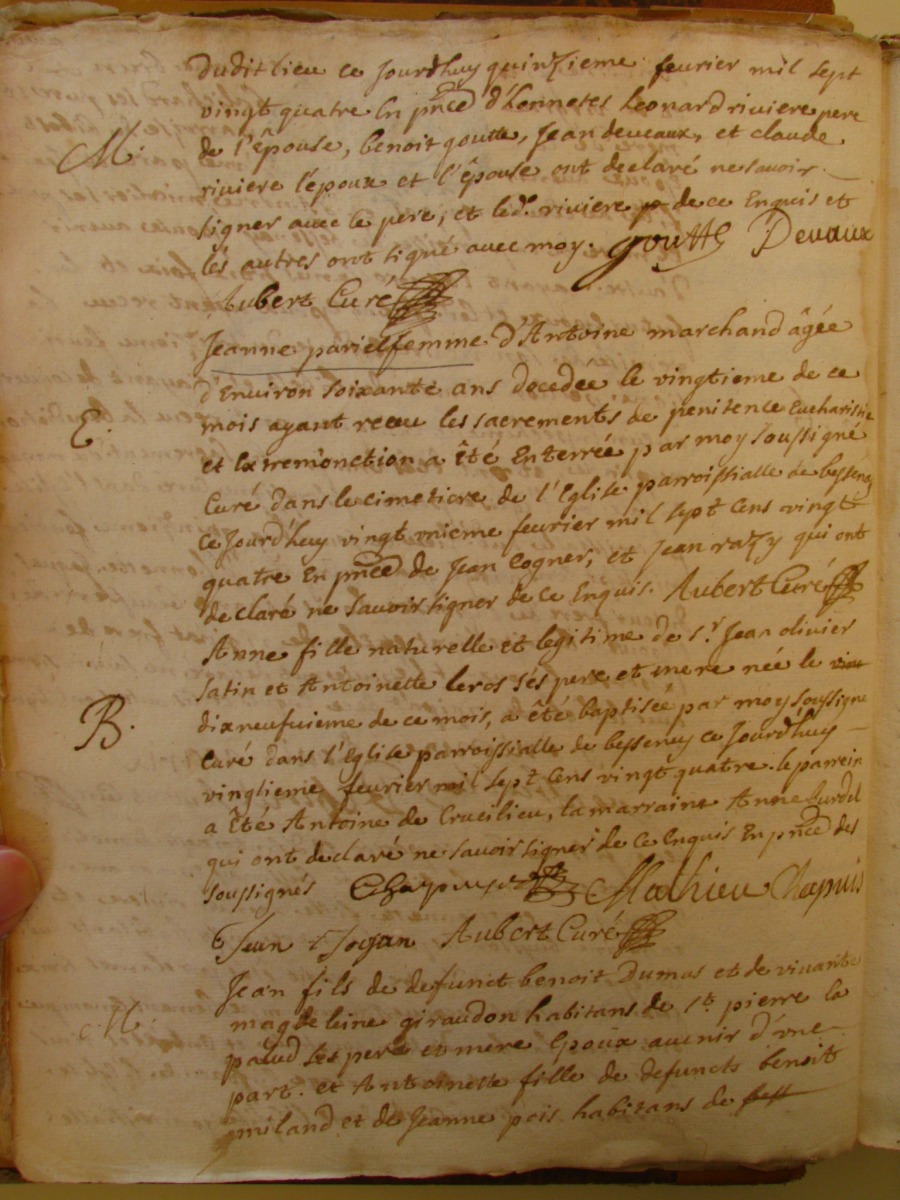 dudit lieu ce Jourdhuy quinzieme fevrier mil sept
vingt quatre En pnce d'honnetes Leonard riviere pere
M. de l'êpouse, benoit goutte, Jean deveaux, et claude
riviere l'époux et l'êpouse ont declaré ne savoir
signer avec le pere, et led. riviere de ce Enquis et
les autres ont signé avec moy. goutte Devaux
Aubert Curé
Jeanne pariel femme d'Antoine marchand âgée
d'Environ soixante ans decedee le vingtieme de ce
E. mois ayant receu les sacrements de penitence Eucharistie
et Extremonction a êté Enterrée par moy soussigné
Curé dans le cimetiere de l'Eglise parroissialle de bessenay
ce Jourd'huy vingt unieme fevrier mil sept Cens vingt
quatre En pnce de Jean Cogner, et Jean razy qui ont
declaré ne savoir signer de ce Enquis. Aubert Curé
Anne fille naturelle et legitime de sr. Jean olivier
satin et Antoinette leros ses pere et mere née le
B. dixneufuieme de ce mois, a êté baptisée par moy soussigné
Curé dans l'Eglise parroissialle de bessenay ce Jourd'huy
vingtieme fevrier mil sept Cens vingt quatre. le parrein
a Eté Antoine de Crucilieu, la marraine Anne
qui ont declaré ne savoir signer de ce Enquis En pnce des
soussignés Chapuys Mathieu Chapuis
Jean Aubert Curé
Jean fils de defunct benoit Dumas et de vivante
M. magdeleine giraudon habitans de st. pierre la
palud ses pere et mere Epoux avenir d'une
part. et Antoinette fille de defuncts benoit
miland et de Jeanne pois habitans de